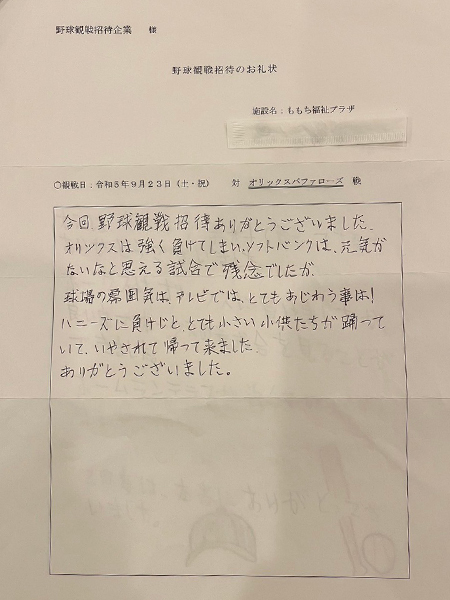 野球観戦招待企業 様
野球観戦招待のお礼状
施設名：ももち福祉プラザ
○観戦日：令和5年9月23日（土・祝） 対 オリックスバファローズ 戦
今回、野球観戦招待ありがとうございました。
オリックスは強く負けてしまい、ソフトバンクは、元気が
ないなと思える試合で残念でしたが、
球場の雰囲気は、テレビでは、とてもあじわう事は！
ハニーズに負けじと、とても小さい小供たちが踊って
いて、いやされて帰って来ました。
ありがとうございました。